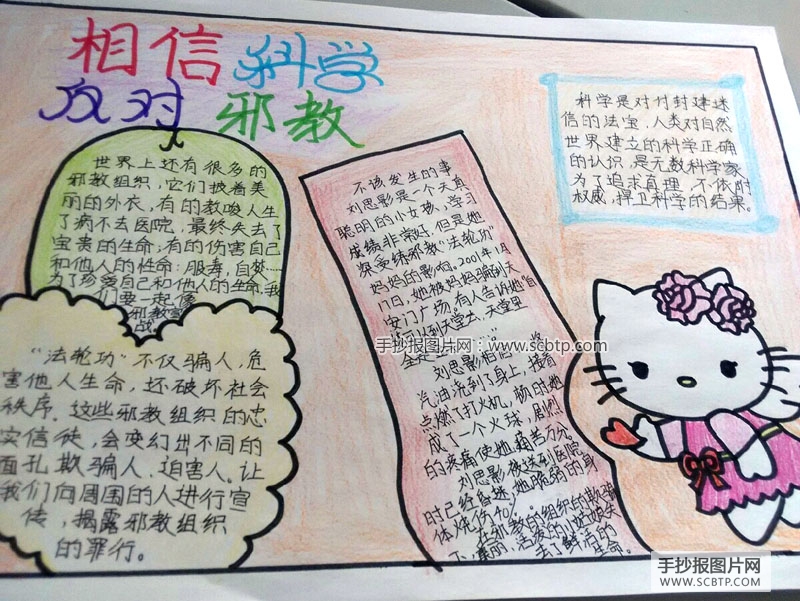 相信科学
反对邪教
世界上还有很多的
邪教组织，它们披着美
丽的外衣，有的教唆人生
了病不去医院，最终失去了
宝贵的生命；有的伤害自己
和他人的性命：服毒，自焚……
为了珍爱自己和他人的生命，我
们要一起像
邪教宣
战
“法轮功”不仅骗人，危
害他人生命，还破坏社会
秩序．这些邪教组织的忠
实信徒，会变幻出不同的
面孔欺骗人，迫害人。让
我们向周围的人进行宣
传，揭露邪教组织
的罪行。
不该发生的事
刘思影是一个天真
聪明的小女孩，学习
成绩非常好，但是她
深受练邪教“法轮功”
妈妈的影响。2001年1月
17日，她被妈妈骗到天
安门广场。有人告诉她“自
可以到天堂去，天堂里
刘思影相信
汽油浇到了身上，接着
点燃了打火机，顿时她
成了一个火球，剧烈
的疼痛使她痛苦万分。
刘思影被送到医院
时已经昏迷，她脆弱的身
体烧伤40%。
在邪教的组织的欺骗
下，美丽，活泼的小姑娘失
去了鲜活的
生命。
科学是对付封建迷
信的法宝，人类对自然
世界建立的科学正确
的认识，是无数科学家
为了追求真理，不依附
权威，捍卫科学的结果。
手抄报图片网：www.scbtp.com
手抄报图片网
WWW.SCBTP.COM